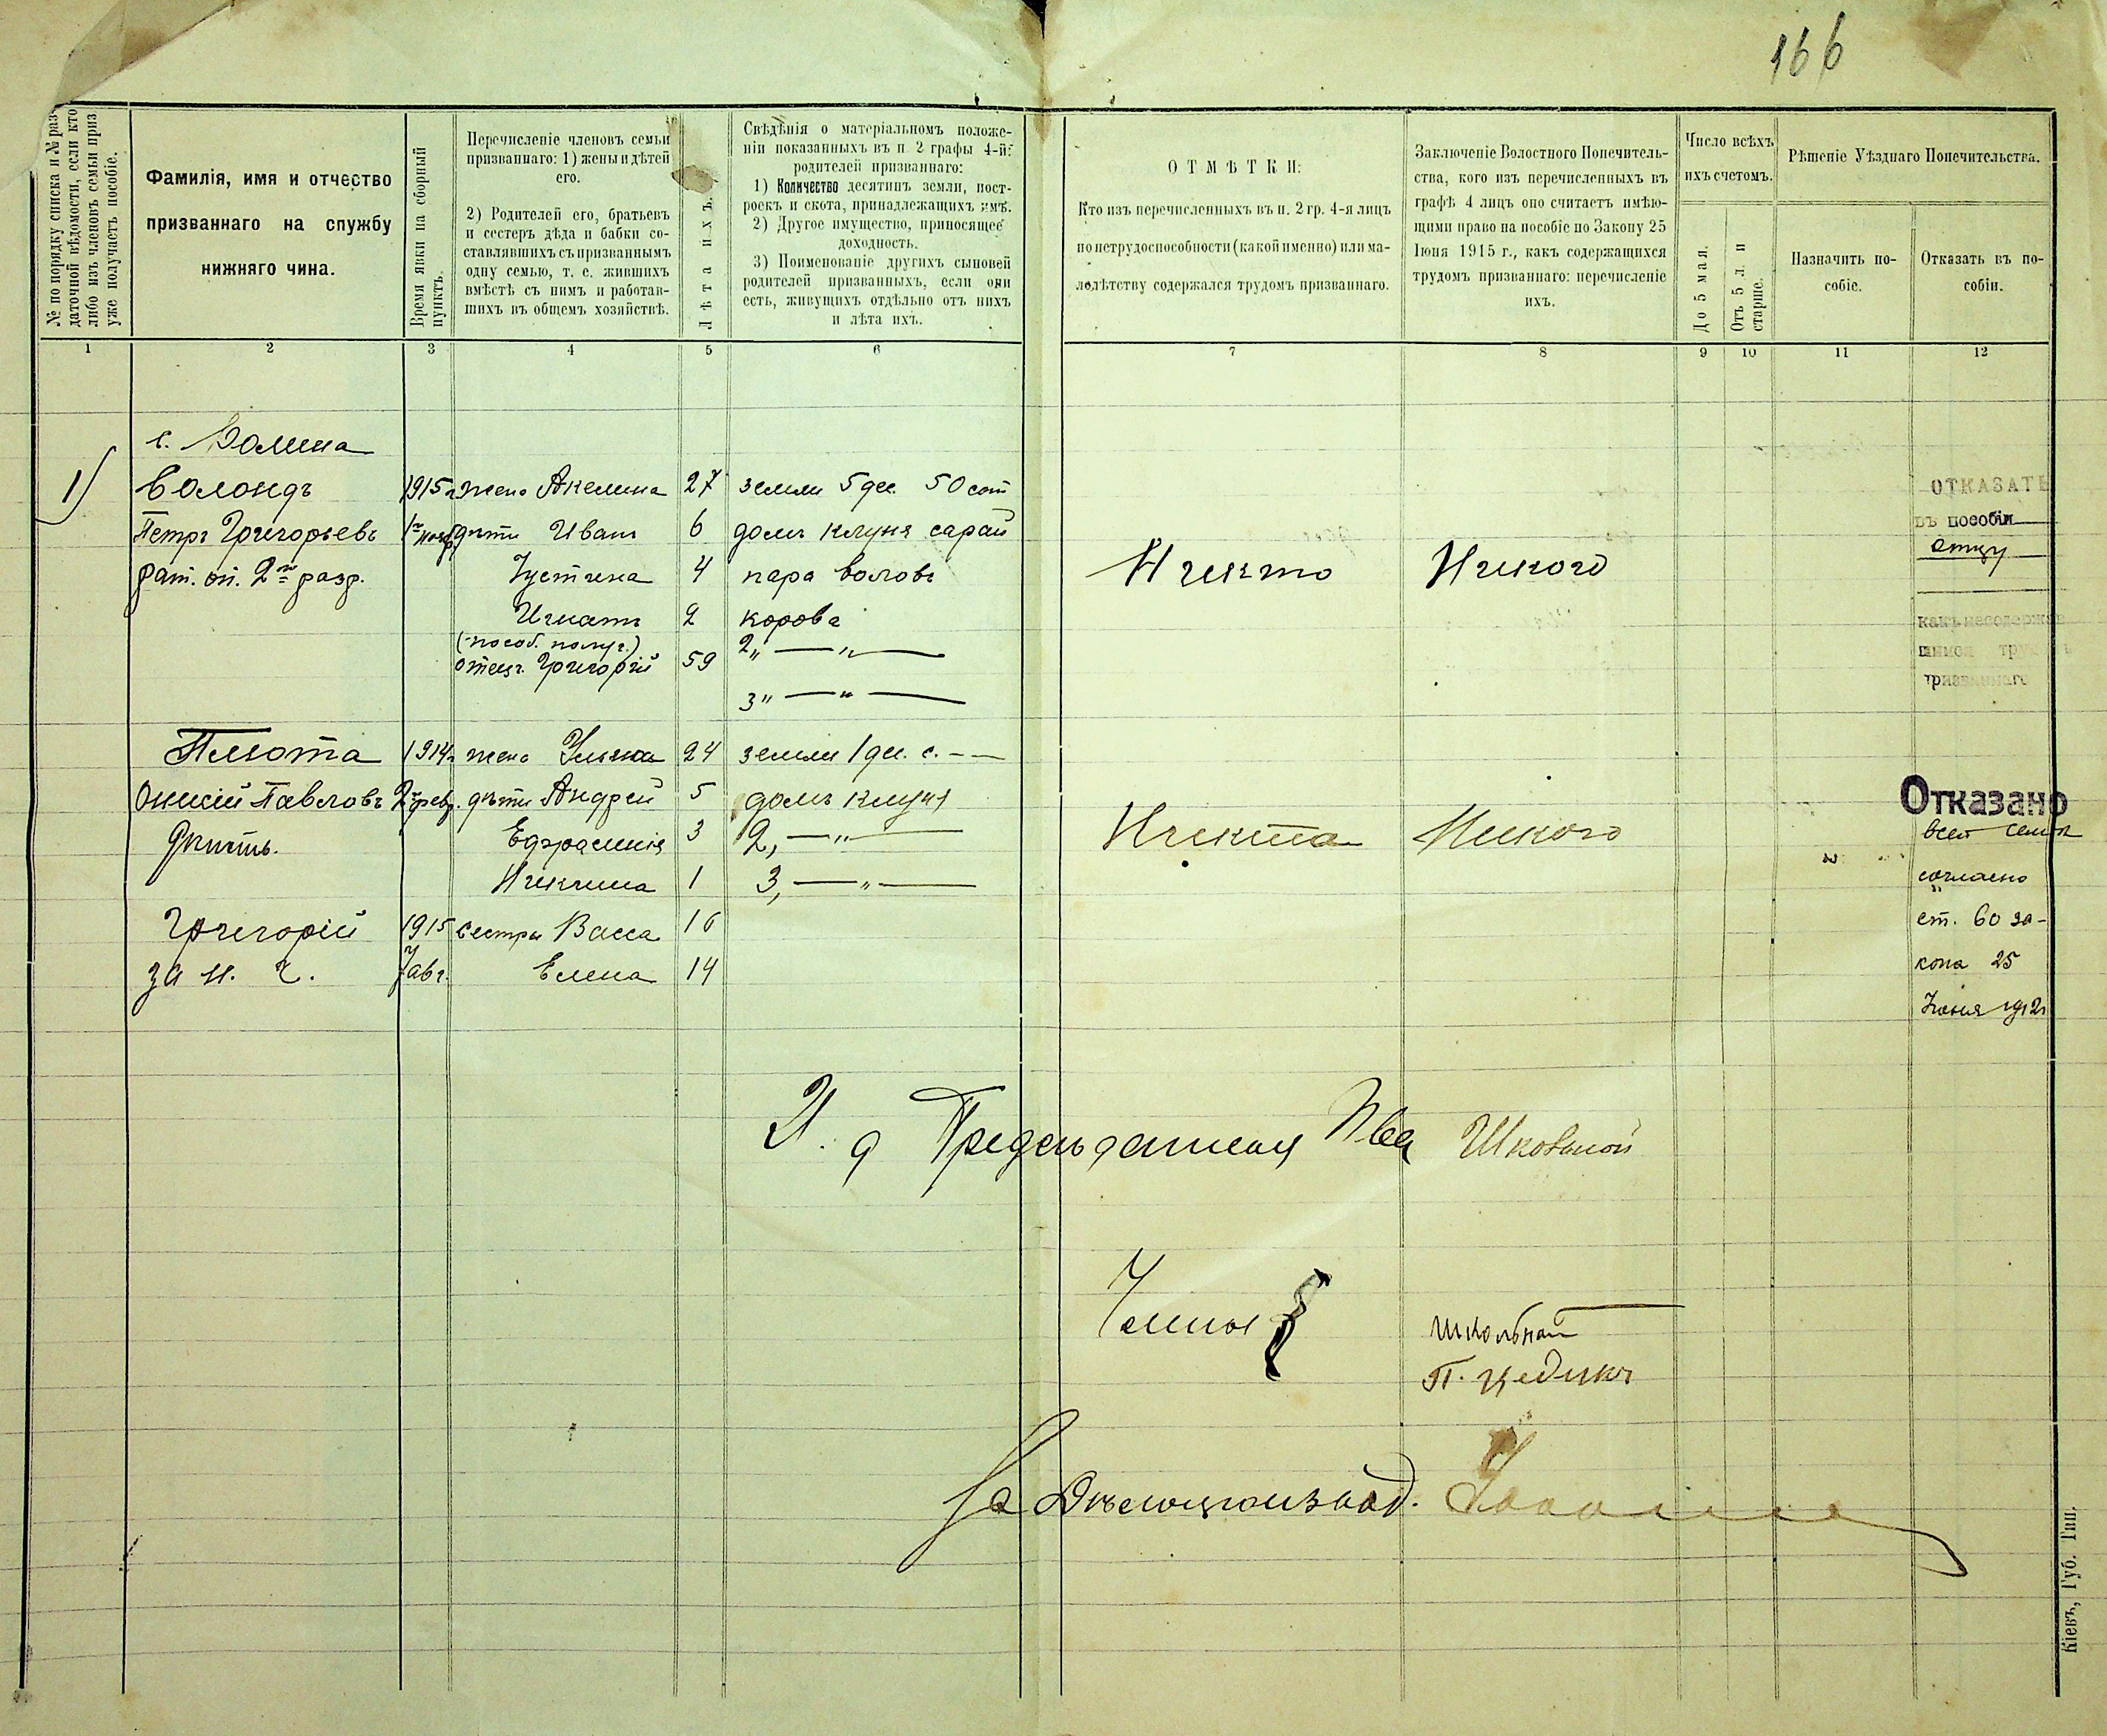 166
№ по порядку списка и № раз-
даточной вѣдомости, если кто
либо изъ членовъ семьи приз
уже получаетъ пособіе.
Фамилія, имя и отчество
призваннаго на службу
нижняго чина.
Время явки на сборный
пунктъ.
Перечисленіе членовъ семьи
призваннаго: 1) жены и дѣтей
его.
2) Родителей его, братьевъ
и сестеръ дѣда и бабки со-
ставлявшихъ съ призваннымъ
одну семью, т. е. жившихъ
вмѣстѣ съ нимъ и работав-
шихъ въ общемъ хозяйствѣ.
Лѣта ихъ.
Свѣдѣнія о матеріальномъ положе-
ніи показанныхъ въ п. 2 графы 4-й:
родителей призваннаго:
1) Количество десятинъ земли, пост-
роекъ и скота, принадлежащихъ имъ.
2) Другое имущество, приносящее
доходность.
3) Поименованіе другихъ сыновей
родителей призванныхъ, если они
есть, живущихъ отдѣльно отъ нихъ
и лѣта ихъ.
ОТМѢТКИ:
Кто изъ перечисленныхъ въ п. 2 гр. 4-я лицъ
по нетрудоспособности (какой именно) или ма-
лолѣтству содержался трудомъ призваннаго.
Заключеніе Волостного Попечитель-
ства, кого изъ перечисленныхъ въ
графѣ 4 лицъ оно считаетъ имѣю-
щими право на пособіе по Закону 25
Іюня 1915 г., какъ содержащихся
трудомъ призваннаго: перечисленіе
ихъ.
Число всѣхъ
ихъ счетомъ.
До 5 мая.
Отъ 5 л. и
старше.
Рѣшеніе Уѣзднаго Попечительства.
Назначить по-
собіе.
Отказать въ по-
собіи.
1 2 3 4 5 6 7 8 9 10 11 12
с. Волина
1) Волондъ 1915 г. жена Акелина 27 земли 5 дес. 50 сот
Петръ Григорьевъ 1го нояб. дѣти Иванъ 6 домъ клуня сарай
рат. оп. 2го разр. Устина 4 пара воловъ
Игнатъ 2 корова
(пособ. получ.) 2 „ — „ —
отецъ Григорій 59
3 „ — „ —
Никто Никого
ОТКАЗАТЬ
въ пособіи
отцу
какъ несодержав
шимся труд
призваннаго
Плюта 1914 г. жена Ульяна 24 земли 1 дес. с. - —
Онисій Павловъ 2 февр. дѣти Андрей 5 домъ клуня
Ефросинія 3 2, — „ —
1 3, — „ —
Григорій 1915 сестры Васса 16
за н. ч. 7 авг. Елена 14
Никто Никого
Отказано
всей семьѣ
согласно
ст. 60 за-
кона 25
Іюня 1912г
И. д Предсѣдателя П-ва Школьной
Члены
Школьной
П. Цедикъ
За Дѣлопроизвод.
Кіевъ, Губ. Тип.